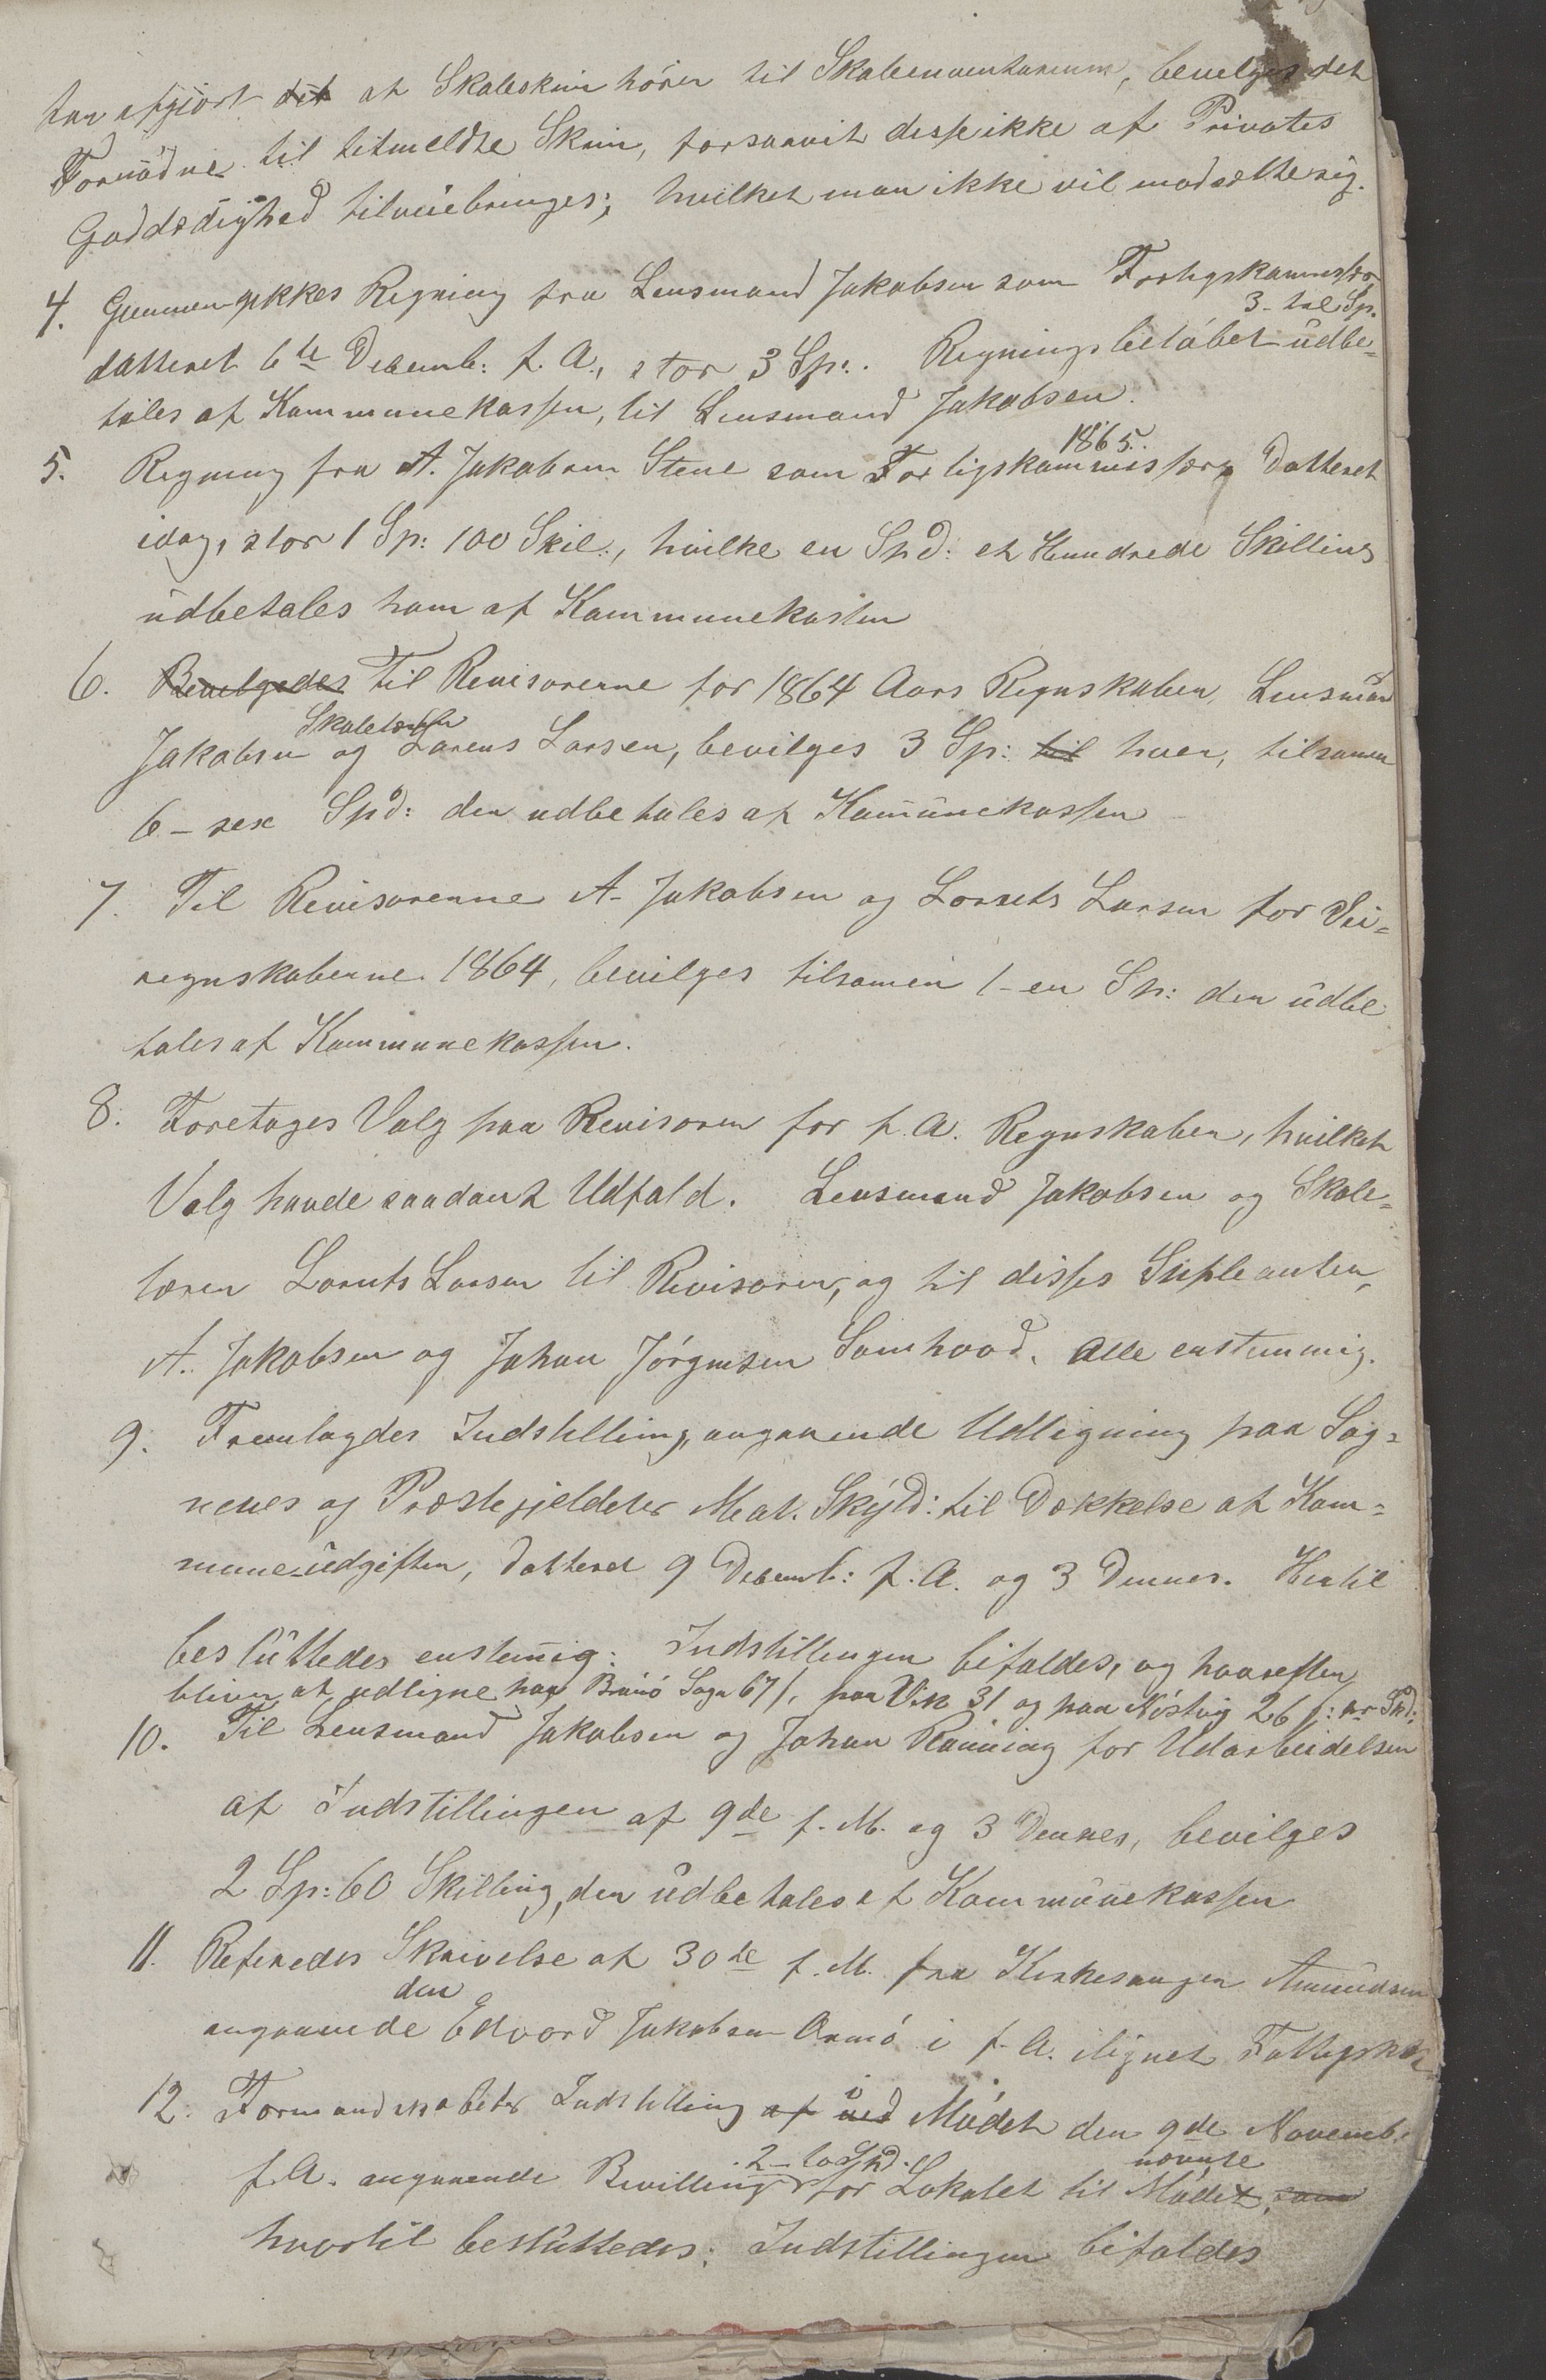 har afgjört det at Skoleskrin hörer til Skoleinventarium, bevilges det
Fornødne til bemeldte Skrin, forsaavit disse ikke af Privates
Goddædighed tilveiebringes; hvilket man ikke vil modsætte sig.
4. Gjennemgikkes Regning fra Lensmand Jakobsen som Forligskommissær
3- tre Sp.
datteret 6te Decemb: f. A., stor 3 Sp:. Regningsbelöbet udbe=
tales af Kommunekassen, til Lensmand Jakobsen.
1865.
5. Regning fra A. Jakobsen Stene som Forligskommissær, Datteret
idag, stor 1 Sp: 100 Skil:, hvilke en Spd: et Hundrede Skilling
udbetales ham af Kommunekassen
6. Bevilgedes Til Revisorerne for 1864 Aars Regnskaber, Lensman
Skolelærer
Jakobsen og Lorens Larsen, bevilges 3 Sp: til hver, tilsamen
6 - sex Spd: der udbetales af Kommunekassen
7. Til Revisorerne A. Jakobsen og Lorents Larsen for Vei=
regnskaberne 1864, bevilges tilsamen 1- en Sp: der udbe
tales af Kommunekassen.
8. Foretages Valg paa Revisorer for f. A. Regnskaber, hvilket
Valg havde saadant Udfald. Lensmand Jakobsen og Skole=
lærer Lorents Larsen til Revisorer, og til disses Supleanter,
A. Jakobsen og Johan Jörgensen Sömhovd. Alle enstemmig.
9. Fremlagdes Indstilling, angaaende Udligning paa Sog=
nenes og Præstegjeldets Mat. Skÿld: til Dækkelse af Kom=
mune-udgifter, datteret 9 Decemb: f. A. og 3 Dennes. Hertil
besluttedes enstemig: Indstillingen bifaldes, og hvorefter
bliver at udligne paa Brönö Sogn 67 /, paa Vik 31 og paa Nöstvig 26 /: pr Spd:
10. Til Lensmand Jakobsen og Johan Rönning for Udarbeidelsen
af Indstillingen af 9de f. M. og 3 Dennes, bevilges
2 Sp: 60 Skilling, der udbetales af Kommunekassen
11. Referedes Skrivelse af 30de f. M. fra Kirkesanger Amundsen
den
angaaende Edvard Jakobsen Armö i f. A. ilignet Fattigskat
12. Formandskabets Indstilling af ved i Mödet den 9de Novemb.
2 - to Spd. nævnte
f. A. angaaende Bevilling for Lokalet til Mödet, som
hvortil besluttedes: Indstillingen bifaldes